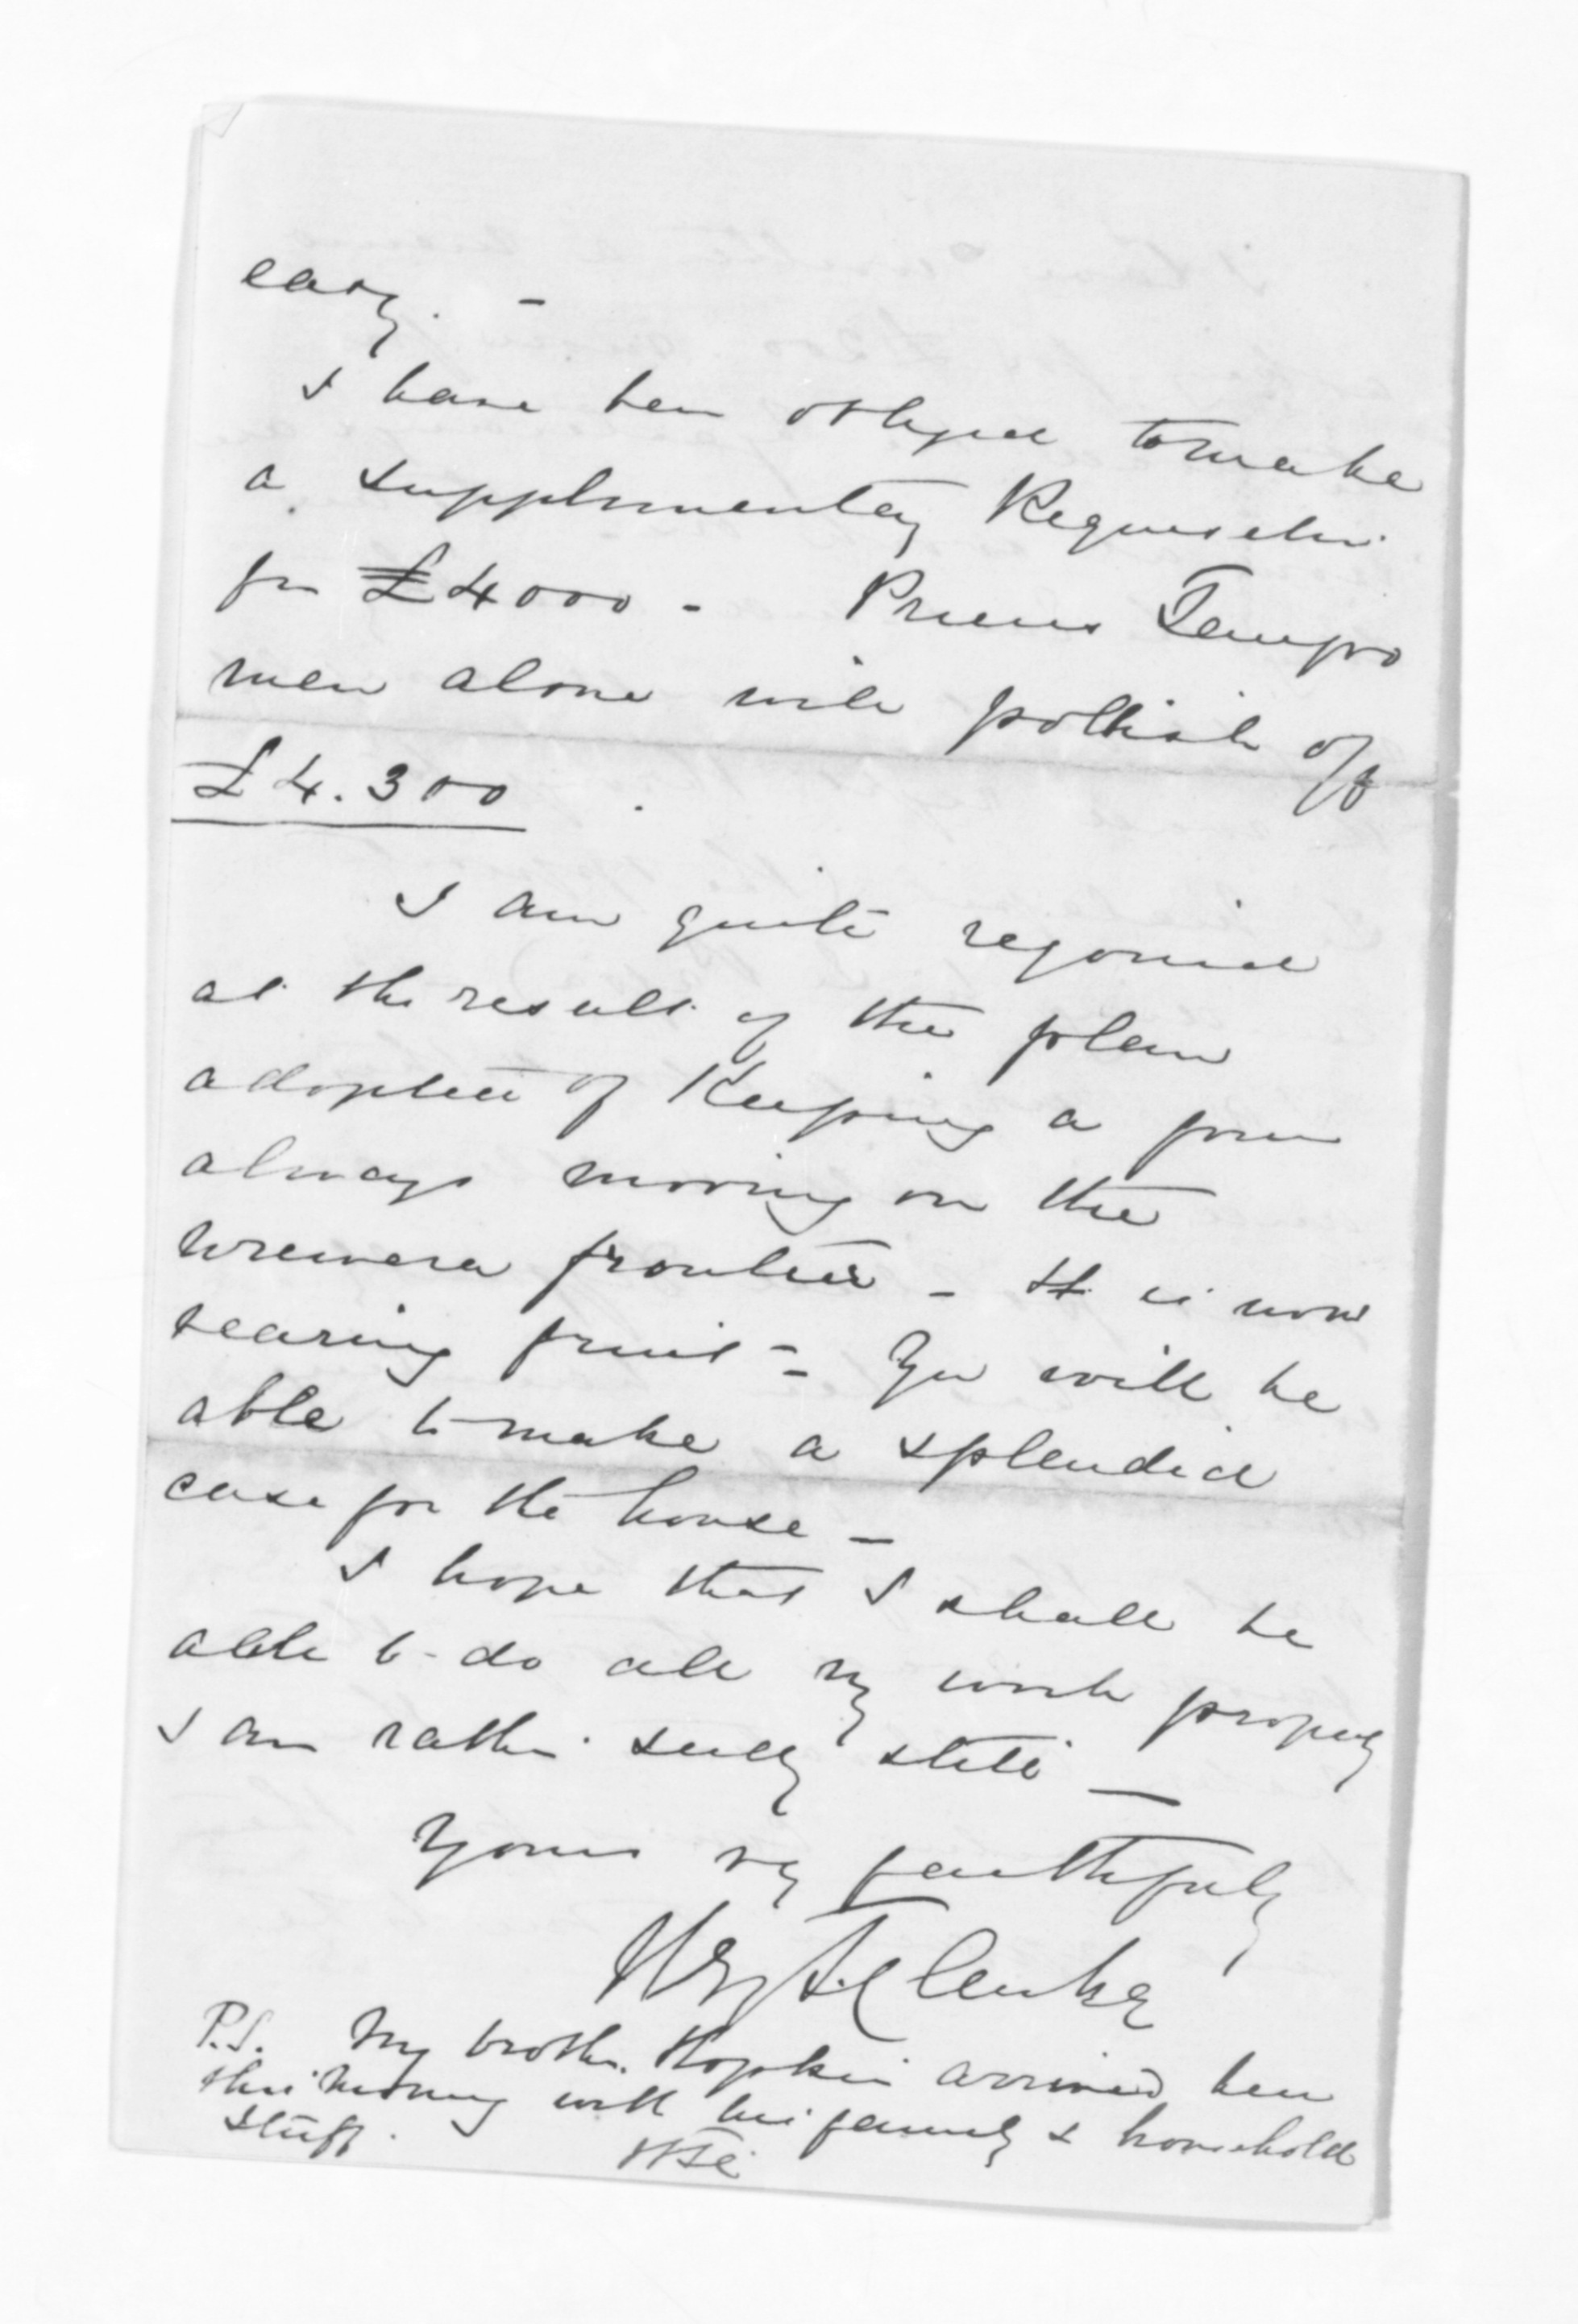 easy. -
I have been obliged to make
a supplementary Requisition
for £4000 - Primus Tempo
men alone will polish off
£4.300
I am quite rejoiced
at the result of the plan
adopted of Keeping a force
always moving on the
Urewera frontier - It is now
bearing fruit - You will be
able to make a splendid
case for the house -
I hope that I shall be
able to do all my work properly
I am rather seedy still -
Yours vy faithfully
Hy T. Clarke
P.S. My brother Hopkin arrived here
this morning with his family & household
stuff. HTC